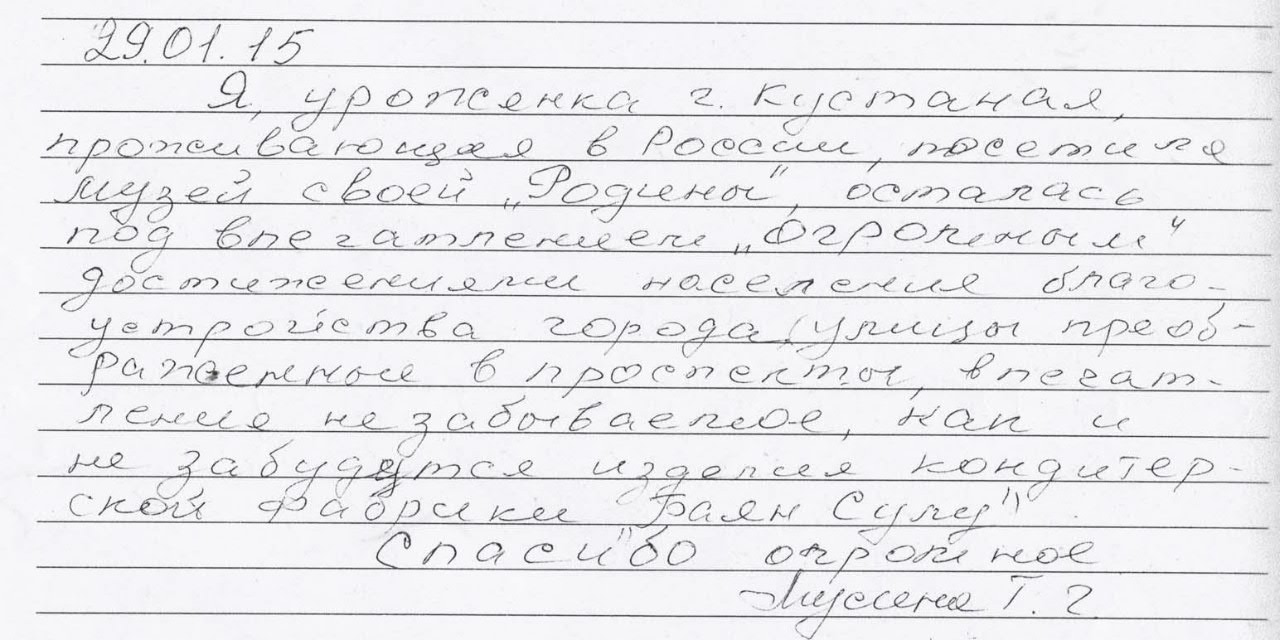 29.01.15
Я, уроженка г. Кустаная,
проживающая в России, посетила
музей своей „Родины", осталась
под впечатлением „Огромным"
достижениями населения благо-
устройства города (улицы преоб-
раженные в проспекты, впечат-
ление незабываемое, как и
не забудутся изделия кондитер-
ской фабрики "Баян Сулу"
Спасибо огромное
Т. Г.